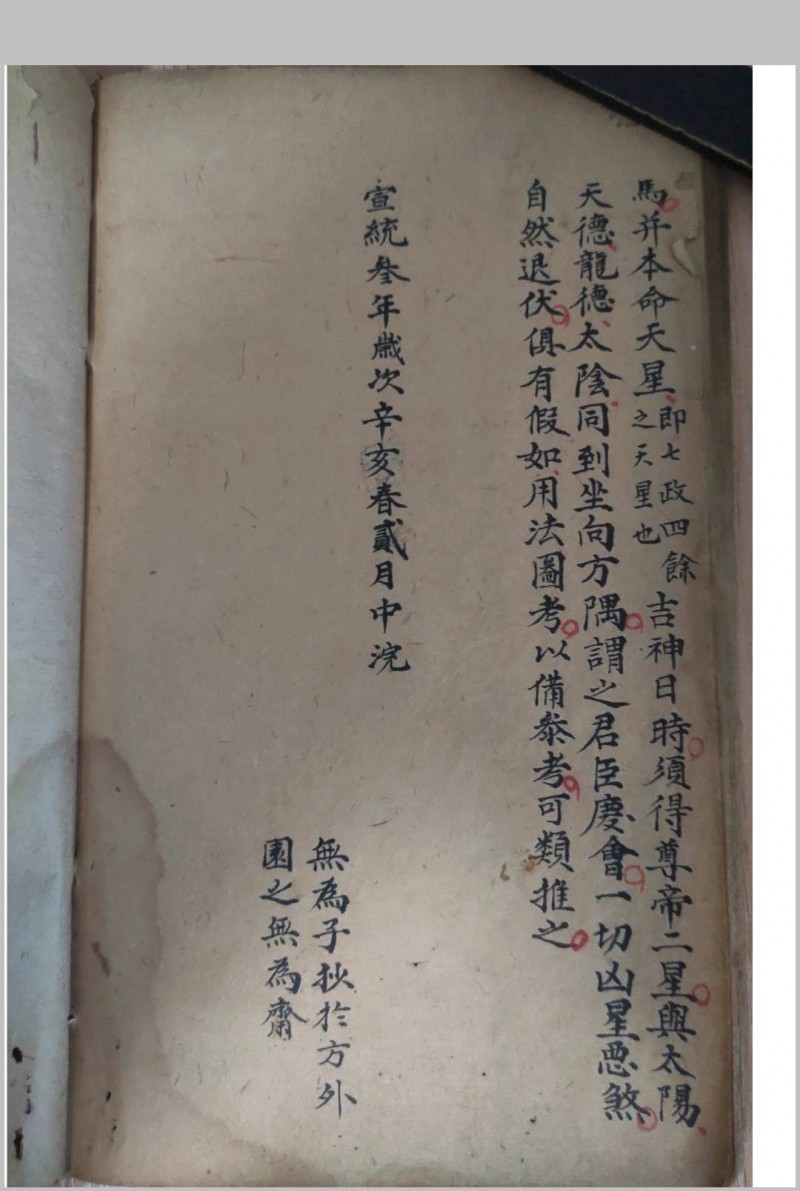 馬并本命天星即七政四餘之天星也吉神日時須得尊帝二星與太陽
天德龍德太陰同到坐向方隅謂之君臣慶會一切凶星惡煞
自然退伏俱有假如用法圖考以備叅考可類推之
宣統叁年歲次辛亥春貳月中浣
無為子抄於方外
園之無為齋